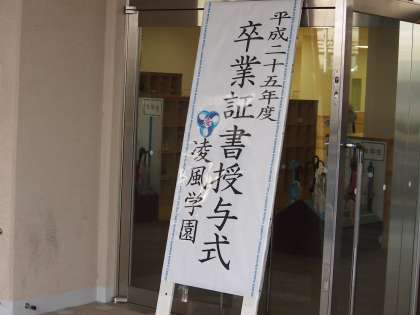 平成二十五年度
卒業証書授与式
凌風学園